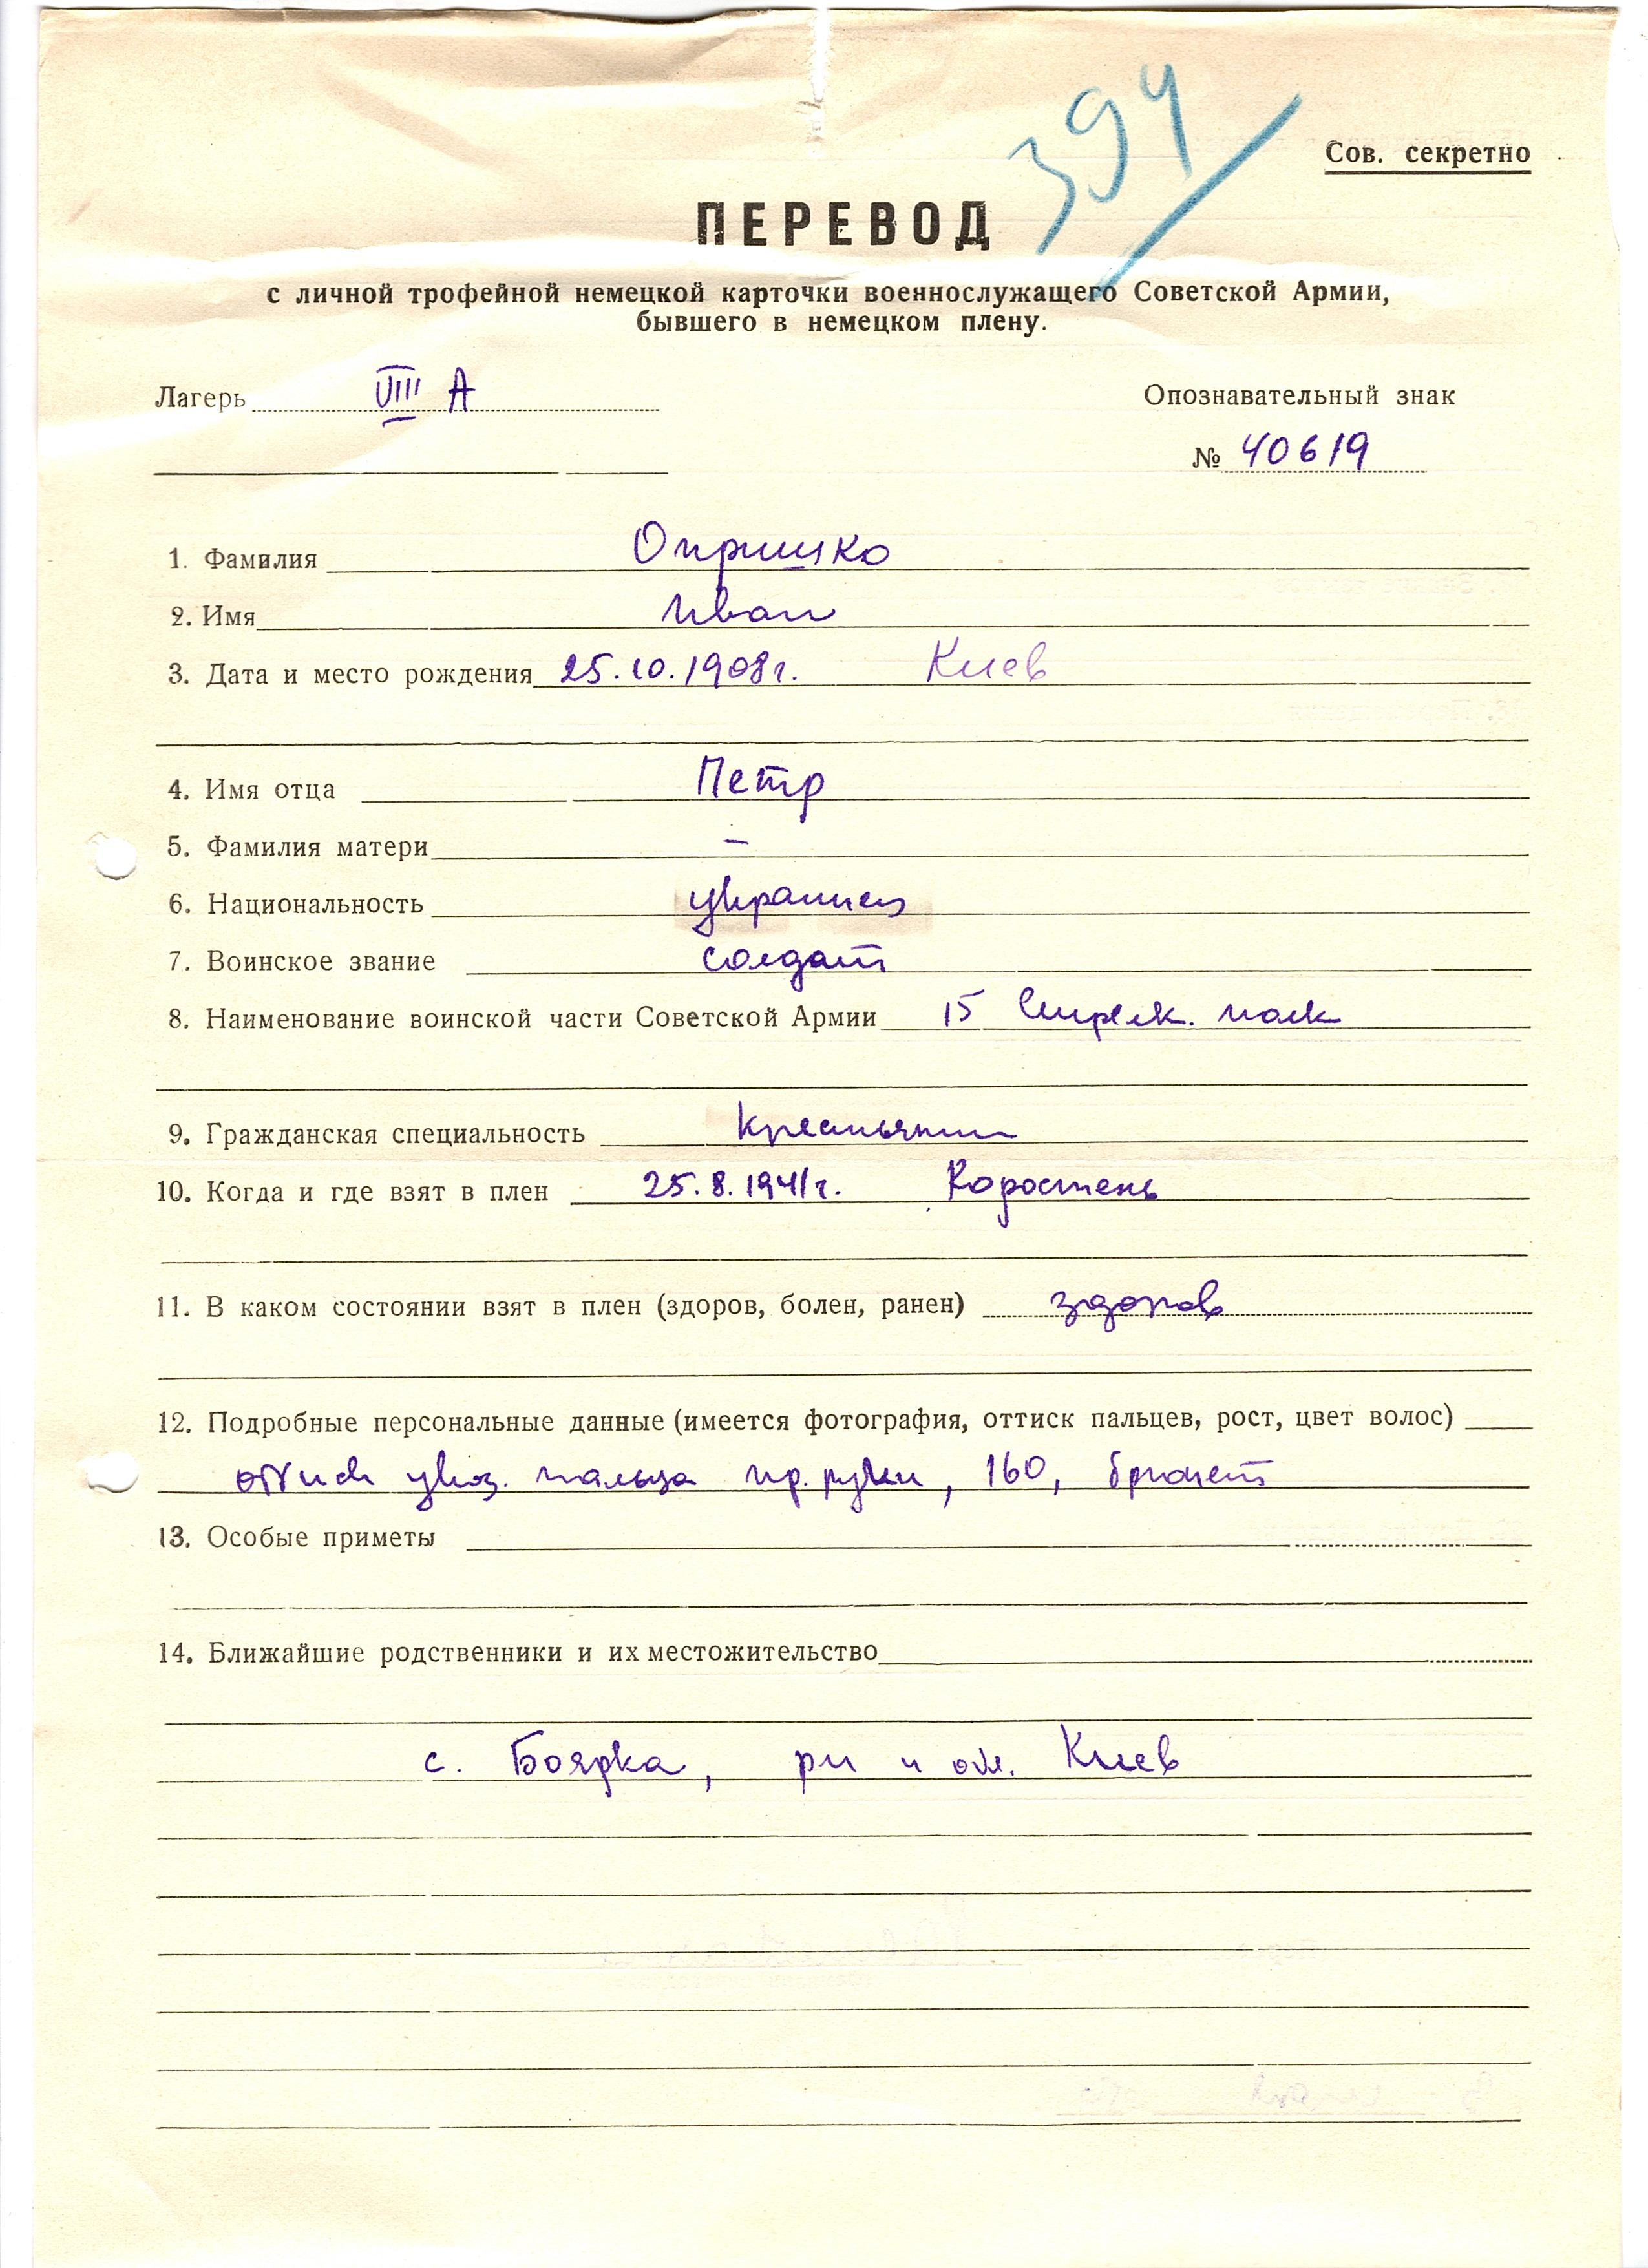 394
Сов. секретно
ПЕРЕВОД
с личной трофейной немецкой карточки военнослужащего Советской Армии,
бывшего в немецком плену.
Лагерь VIII А Опознавательный знак
№ 40619
1. Фамилия Опришко
2. Имя Иван
3. Дата и место рождения 25.10.1908г. Киев
4. Имя отца Петр
5. Фамилия матери —
6. Национальность украинец
7. Воинское звание солдат
8. Наименование воинской части Советской Армии 15 Стрелк. полк
9. Гражданская специальность крестьянин
10. Когда и где взят в плен 25.8.1941г. Коростень
11. В каком состоянии взят в плен (здоров, болен, ранен) здоров
12. Подробные персональные данные (имеется фотография, оттиск пальцев, рост, цвет волос)
оттиск указ. пальца пр. руки, 160, брюнет
13. Особые приметы
14. Ближайшие родственники и их местожительство
с. Боярка, рн и обл. Киев